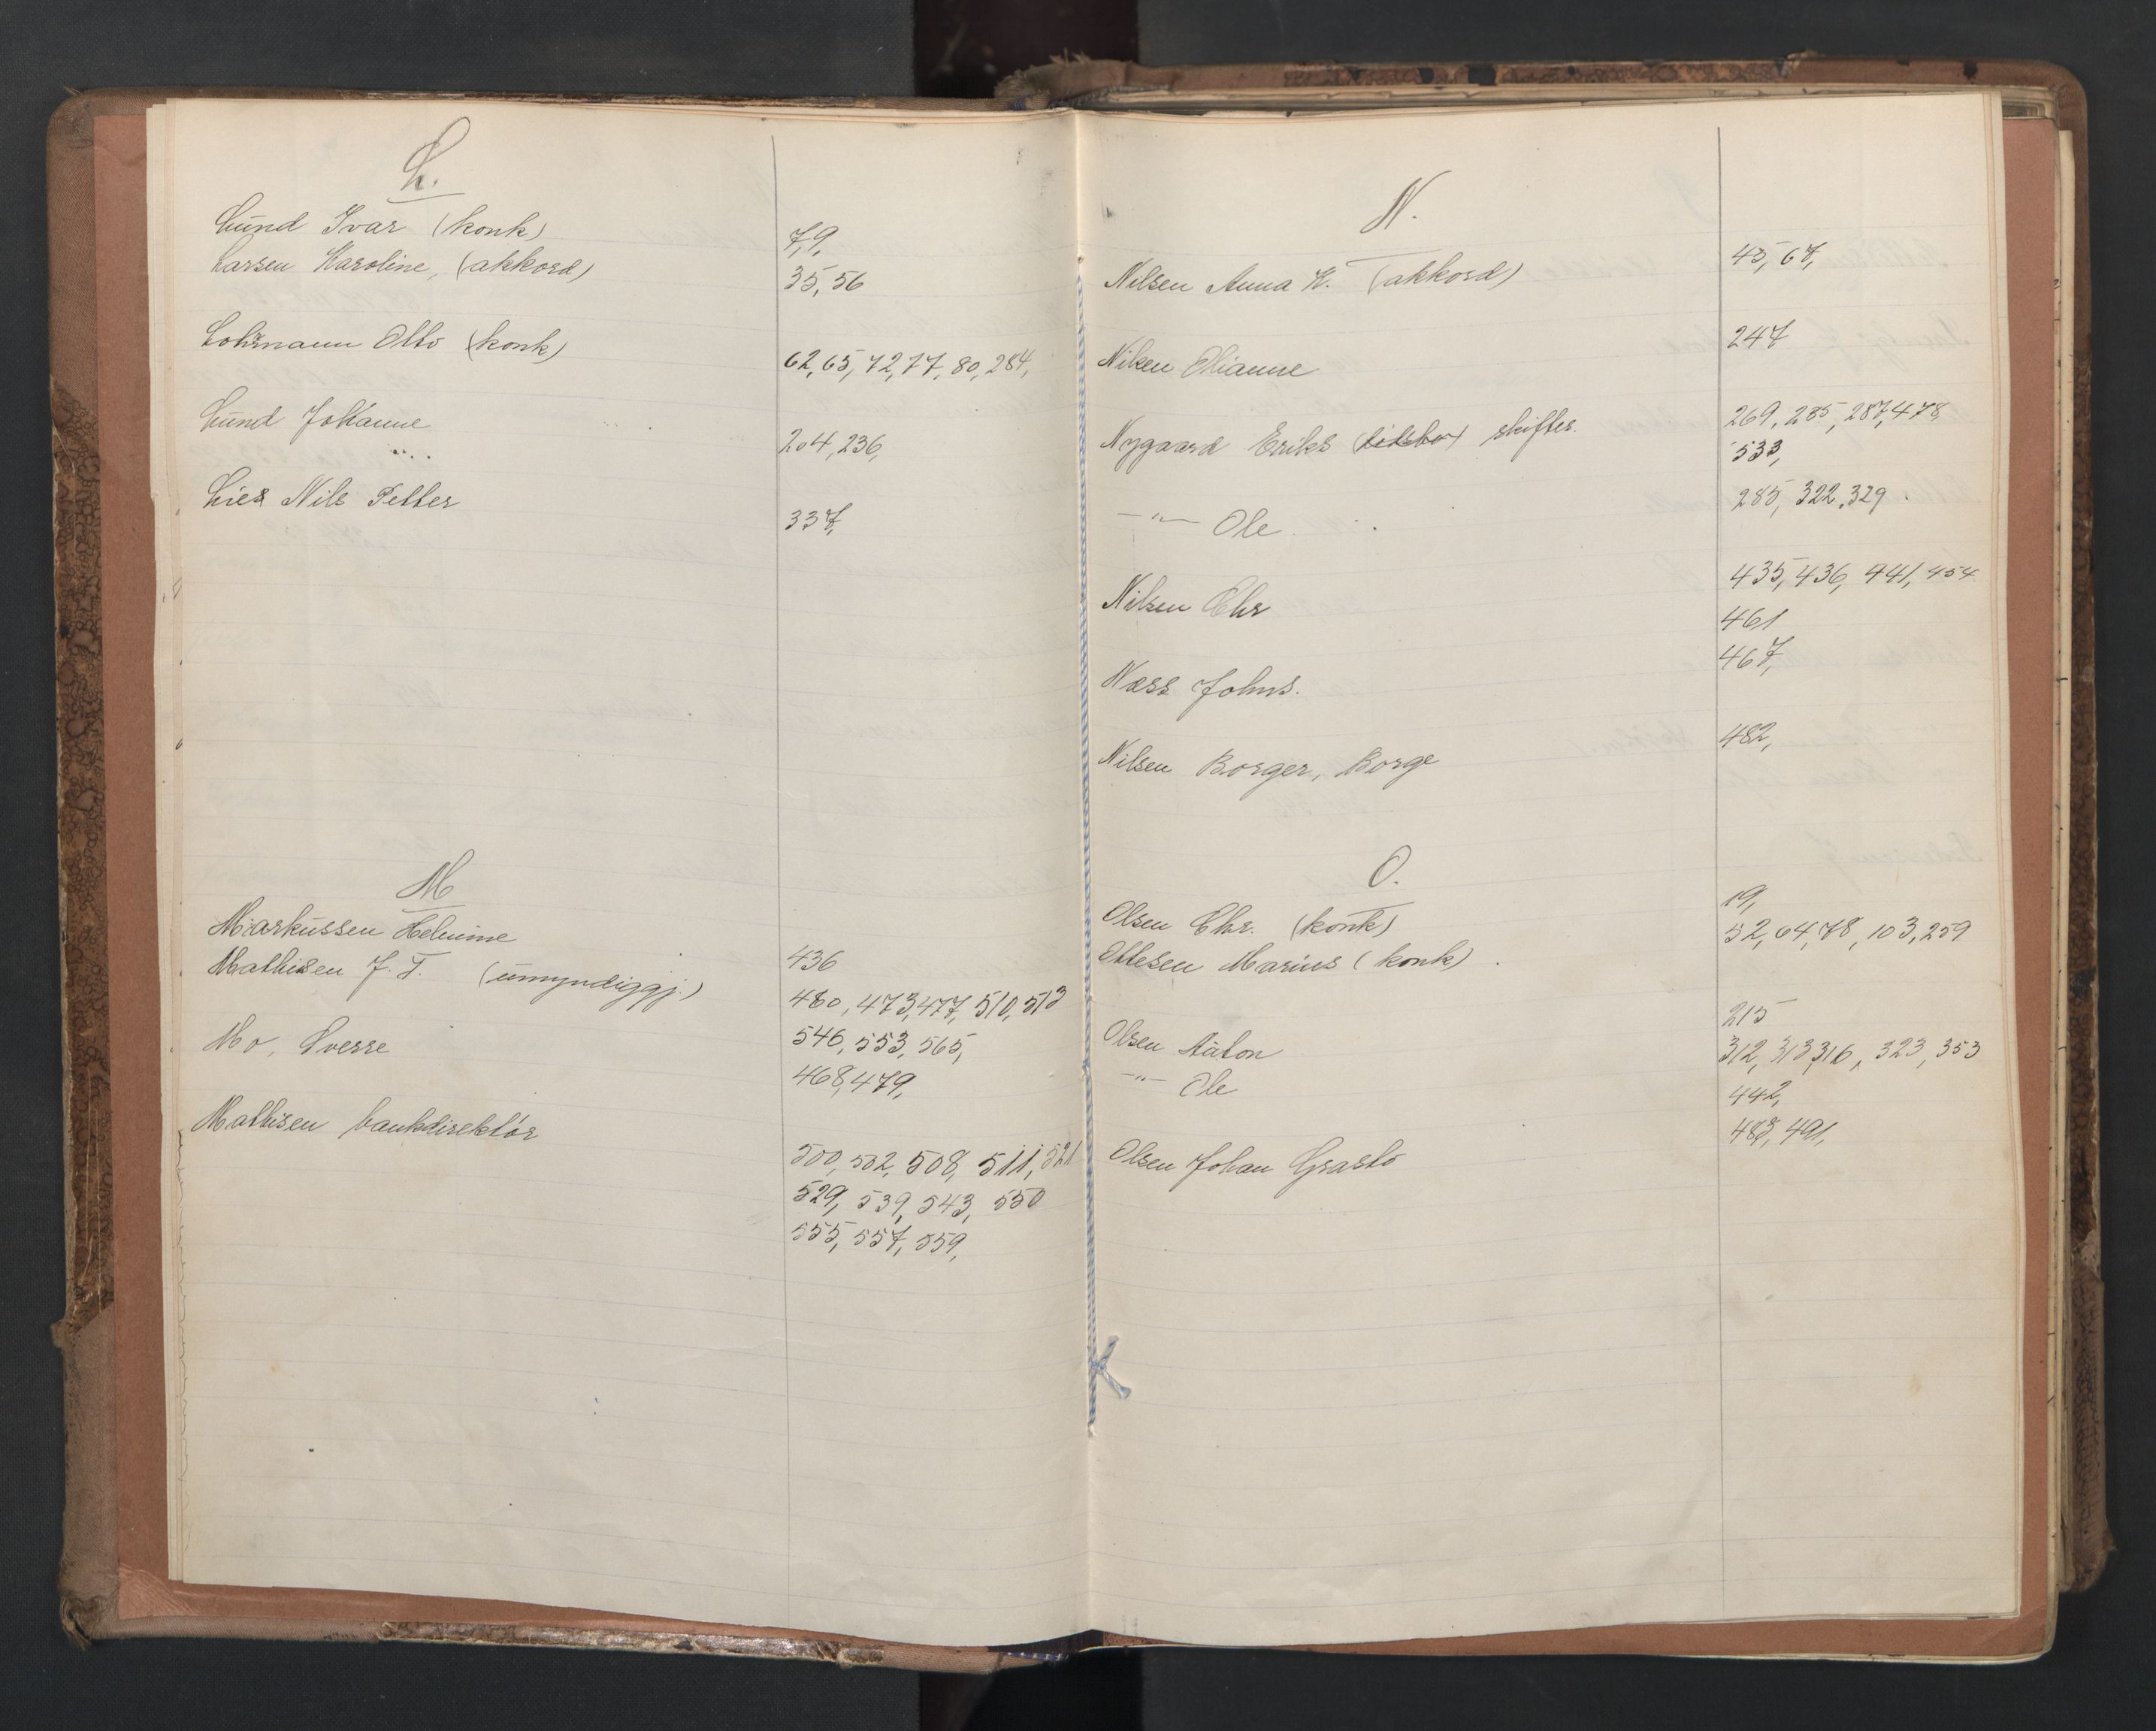 L.
Lund Ivar (konk) 7,9,
Larsen Karoline, (akkord) 35, 56
Lohrmann Otto (konk) 62, 65, 72, 77, 80, 284,
Lund Johanne 204, 236,
Lies Nils Petter 337,
M
Markussen Helmine 436
Mathisen J. T. (umyndiggj.) 480, 473, 477, 510, 513
546, 553, 565,
Mo, Sverre 468, 479,
Mathisen bankdirektør 500, 502, 508, 511, 521
529, 539, 543, 550
555, 557, 559,
N.
Nilsen Anna K. (akkord) 45, 67,
Nilsen Olianne 247
Nygaard Eriks skiftes. 269, 285, 287, 478,
533,
—"— Ole 285, 322, 329.
Nilsen Chr 435, 436, 441, 454
461
Næss Johns. 467,
Nilsen Borger, Borge 482,
O.
Olsen Chr. (konk) 19,
Ottesen Marius (konk). 52, 64, 78, 103, 259
Olsen Anton 215
—"— Ole 312, 313, 316, 323, 353
442,
Olsen Johan Grasto 483, 491,